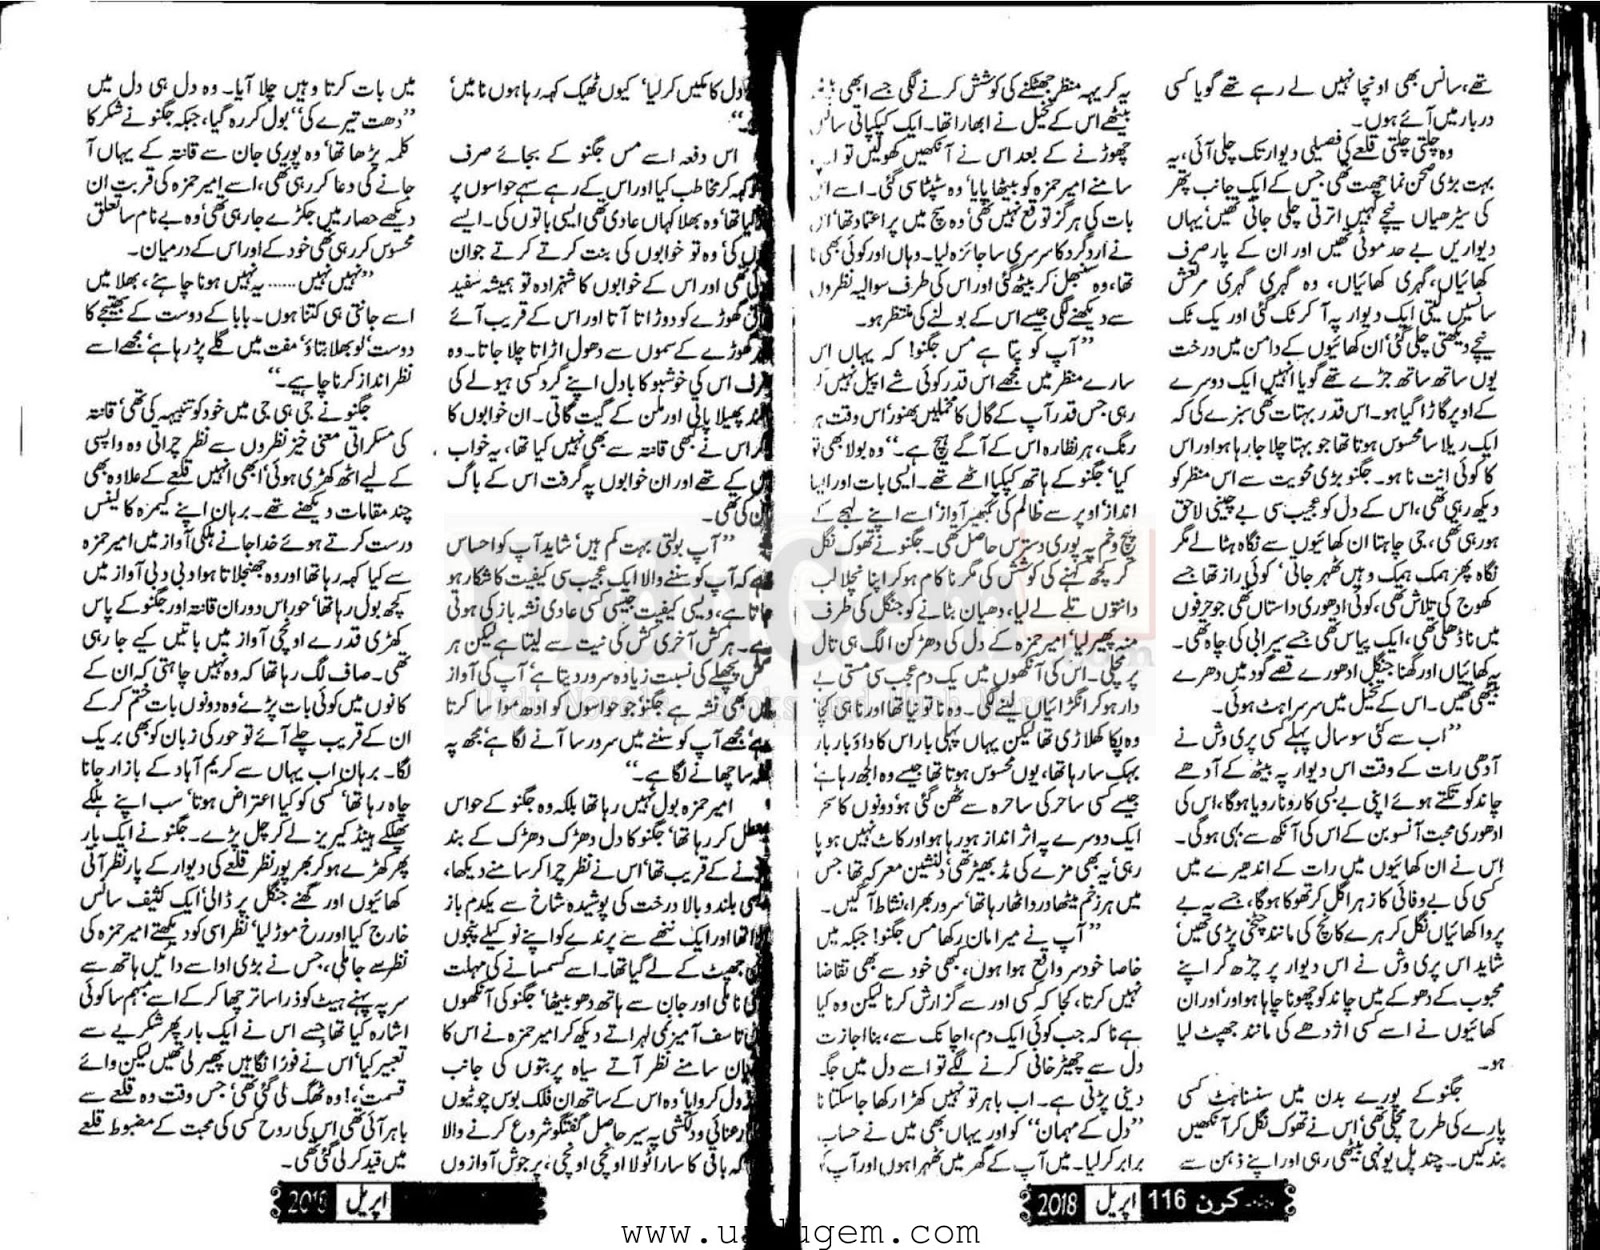 تھے، سانس بھی اونچا نہیں لے رہے تھے گویا کسی
دربار میں آئے ہوں۔
وہ چلتی چلتی قلعے کی فصیلی دیوار تک چلی آئی، یہ
بہت بڑی صحن نما چھت تھی جس کے ایک جانب پتھر
کی سیڑھیاں نیچے کہیں اترتی چلی جاتی تھیں' یہاں
دیواریں بے حد موٹی تھیں اور ان کے پار صرف
کھائیاں، گہری کھائیاں، وہ گہری گہری مرتعش
سانسیں لیتی ایک دیوار پہ آ کر ٹک گئی اور یک ٹک
نیچے دیکھتی چلی گئی' ان کھائیوں کے دامن میں درخت
یوں ساتھ ساتھ جڑے تھے گویا انہیں ایک دوسرے
کے اوپر گاڑا گیا ہو۔ اس قدر بہتات تھی سبزے کی کہ
ایک ریلا سا محسوس ہوتا تھا جو بہتا چلا جا رہا ہو اور اس
کا کوئی انت نا ہو۔ جگنو بڑی محویت سے اس منظر کو
دیکھ رہی تھی، اس کے دل کو عجیب سی بے چینی لاحق
ہو رہی تھی، جی چاہتا ان کھائیوں سے نگاہ ہٹا لے مگر
نگاہ پھر ہمک ہمک وہیں ٹھہر جاتی' کوئی راز تھا جسے
کھوج کی تلاش تھی، کوئی ادھوری داستاں تھی جو حرفوں
میں نا ڈھلی تھی، ایک پیاس تھی جسے سیرابی کی چاہ تھی۔
یہ کھائیاں اور گھنا جنگل ادھورے قصے گود میں دھرے
بیٹھی تھیں۔ اس کے تخیل میں سرسراہٹ ہوئی۔
"اب سے کئی سو سال پہلے کسی پری وش نے
آدھی رات کے وقت اس دیوار پہ بیٹھ کے آدھے
چاند کو تکتے ہوئے اپنی بے بسی کا رونا رویا ہوگا، اس کی
ادھوری محبت آنسو بن کے اس کی آنکھ سے بہی ہوگی۔
اس نے ان کھائیوں میں رات کے اندھیرے میں
کسی کی بے وفائی کا زہر اگل کر تھوکا ہوگا، جسے یہ بے
پروا کھائیاں نگل کر ہرے کانچ کی مانند چٹخی پڑی تھیں'
شاید اس پری وش نے اس دیوار پر چڑھ کر اپنے
محبوب کے دھوکے میں چاند کو چھونا چاہا ہو اور' اور ان
کھائیوں نے اسے کسی اژدھے کی مانند جھپٹ لیا
ہو۔
جگنو کے پورے بدن میں سنسناہٹ کسی
پارے کی طرح مچلی تھی' اس نے تھوک نگل کر آنکھیں
بند کیں۔ چند پل یونہی بیٹھی رہی اور اپنے ذہن سے
یہ کریہہ منظر جھٹکنے کی کوشش کرنے لگی جسے ابھی
بیٹھے اس کے تخیل نے ابھارا تھا۔ ایک کپکپاتی سانس
چھوڑنے کے بعد اس نے آنکھیں کھولیں تو
سامنے امیر حمزہ کو بیٹھا پایا' وہ سٹپٹا سی گئی۔ اسے اس
بات کی ہرگز توقع نہیں تھی' وہ سچ میں پر اعتماد تھا' اس
نے ارد گرد کا سرسری سا جائزہ لیا۔ وہاں اور کوئی بھی نا
تھا، وہ سنبھل کر بیٹھ گئی اور اس کی طرف سوالیہ نظروں
سے دیکھنے لگی جیسے اس کے بولنے کی منتظر ہو۔
"آپ کو پتا ہے مس جگنو! کہ یہاں اس
سارے منظر میں مجھے اس قدر کوئی شے اپیل نہیں کر
رہی جس قدر آپ کے گال کا مخملیں بھنور' اس وقت ہر
رنگ، ہر نظارہ اس کے آگے ہیچ ہے۔" وہ بولا بھی تو
کیا' جگنو کے ہاتھ کپکپا اٹھے تھے۔ ایسی بات اور ایسا
انداز' اوپر سے ظالم کی گمبھیر آواز' اسے اپنے لہجے کے
پیچ و خم پہ پوری دسترس حاصل تھی۔ جگنو نے تھوک نگل
کر کچھ کہنے کی کوشش کی مگر ناکام ہو کر اپنا نچلا لب
دانتوں تلے لے لیا، دھیان بٹانے کو جنگل کی طرف
منہ پھیر لیا' امیر حمزہ کے دل کی دھڑکن الگ ہی تال
پر مچلی۔ اس کی آنکھوں میں یک دم عجب سی مستی بے
دار ہو کر انگڑائیاں لینے لگی۔ وہ نا تو نیا تھا اور نا ہی کچا'
وہ پکا کھلاڑی تھا لیکن یہاں پہلی بار اس کا داؤ بار بار
بہک سا رہا تھا، یوں محسوس ہوتا تھا جیسے وہ الجھ رہا ہے'
جیسے کسی ساحر کی ساحرہ سے ٹھن گئی ہو' دونوں کا سحر
ایک دوسرے پہ اثر انداز ہو رہا ہو اور کاٹ نہیں ہو پا
رہی' یہ بھی مزے کی مڈبھیڑ تھی' دلنشین معرکہ تھا جس
میں ہر زخم میٹھا درد اٹھا رہا تھا' سرور بھرا، نشاط آگیں۔
"آپ نے میرا مان رکھا مس جگنو! جبکہ میں
خاصا خودسر واقع ہوا ہوں، کبھی خود سے بھی تقاضا
نہیں کرتا، کجا کہ کسی اور سے گزارش کرنا لیکن وہ کیا
ہے نا کہ جب کوئی ایک دم، اچانک سے، بنا اجازت
دل سے چھیڑ خانی کرنے لگے تو اسے دل میں جگہ
دینی پڑتی ہے۔ اب باہر تو نہیں کھڑا رکھا جا سکتا نا
"دل کے مہمان" کو اور یہاں بھی میں نے حساب
برابر کر لیا۔ میں آپ کے گھر میں ٹھہرا ہوں اور آپ کو
کرن 116 اپریل 2018
دل کا مکیں کر لیا' کیوں ٹھیک کہہ رہا ہوں نا میں'
"
اس دفعہ اسے مس جگنو کے بجائے صرف
کہہ کر مخاطب کیا اور اس کے رہے سہے حواسوں پر
گیا تھا' وہ بھلا کہاں عادی تھی ایسی باتوں کی۔ ایسے
کی' وہ تو خوابوں کی بنت کرتے کرتے جوان
تھی اور اس کے خوابوں کا شہزادہ تو ہمیشہ سفید
گھوڑے کو دوڑاتا آتا اور اس کے قریب آئے
گھوڑے کے سموں سے دھول اڑاتا چلا جاتا۔ وہ
صرف اس کی خوشبو کا بادل اپنے گرد کسی ہیولے کی
مانند پھیلا پاتی اور ملن کے گیت گاتی۔ ان خوابوں کا
اس نے کبھی قانتہ سے بھی نہیں کیا تھا، یہ خواب
کے تھے اور ان خوابوں پہ گرفت اس کے باگ
کی تھی۔
"آپ بولتی بہت کم ہیں' شاید آپ کو احساس
ہے کہ آپ کو سننے والا ایک عجیب سی کیفیت کا شکار ہو
جاتا ہے، ویسی کیفیت جیسی کسی عادی نشہ باز کی ہوتی
ہے۔ ہر کش آخری کش کی نیت سے لیتا ہے لیکن ہر
کش پچھلے کی نسبت زیادہ سرور دیتا ہے' آپ کی آواز
میں بھی نشہ ہے جگنو جو حواسوں کو ادھ موا سا کرتا
ہے' مجھے آپ کو سننے میں سرور سا آنے لگا ہے' مجھ پہ
نشہ سا چھانے لگا ہے۔"
امیر حمزہ بول نہیں رہا تھا بلکہ وہ جگنو کے حواس
معطل کر رہا تھا' جگنو کا دل دھڑک دھڑک کے بند
ہونے کے قریب تھا' اس نے نظر چرا کر سامنے دیکھا،
کسی بلند و بالا درخت کی پوشیدہ شاخ سے یکدم باز
اڑا تھا اور ایک ننھے سے پرندے کو اپنے نوکیلے پنجوں
میں جھپٹ کے لے گیا تھا۔ اسے کسمسانے کی مہلت
بھی نا ملی اور جان سے ہاتھ دھو بیٹھا' جگنو کی آنکھوں
تاسف آمیز نمی لہراتے دیکھ کر امیر حمزہ نے اس کا
دھیان سامنے نظر آتے سیاہ پربتوں کی جانب
مبذول کروایا' وہ اس کے ساتھ ان فلک بوس چوٹیوں
رعنائی و دلکشی پہ سیر حاصل گفتگو شروع کرنے والا
کہ باقی کا سارا ٹولا اونچی اونچی، پرجوش آوازوں
میں بات کرتا وہیں چلا آیا۔ وہ دل ہی دل میں
"دھت تیرے کی" بول کر رہ گیا، جبکہ جگنو نے شکر کا
کلمہ پڑھا تھا' وہ پوری جان سے قانتہ کے یہاں آ
جانے کی دعا کر رہی تھی، اسے امیر حمزہ کی قربت ان
دیکھے حصار میں جکڑے جا رہی تھی' وہ بے نام سا تعلق
محسوس کر رہی تھی خود کے اور اس کے درمیان۔
"نہیں نہیں...... یہ نہیں ہونا چاہئے، بھلا میں
اسے جانتی ہی کتنا ہوں۔ بابا کے دوست کے بھتیجے کا
دوست' لو بھلا بتاؤ' مفت میں گلے پڑ رہا ہے' مجھے اسے
نظر انداز کرنا چاہیے۔"
جگنو نے جی ہی جی میں خود کو تنبیہہ کی تھی' قانتہ
کی مسکراتی معنی خیز نظروں سے نظر چراتی وہ واپسی
کے لیے اٹھ کھڑی ہوئی' ابھی انہیں قلعے کے علاوہ بھی
چند مقامات دیکھنے تھے۔ برہان اپنے کیمرہ کا لینس
درست کرتے ہوئے خدا جانے ہلکی آواز میں امیر حمزہ
سے کیا کہہ رہا تھا اور وہ جھنجلاتا ہوا دبی دبی آواز میں
کچھ بول رہا تھا' حور اس دوران قانتہ اور جگنو کے پاس
کھڑی قدرے اونچی آواز میں باتیں کیے جا رہی
تھی۔ صاف لگ رہا تھا کہ وہ نہیں چاہتی کہ ان کے
کانوں میں کوئی بات پڑے' وہ دونوں بات ختم کر کے
ان کے قریب چلے آئے تو حور کی زبان کو بھی بریک
لگا۔ برہان اب یہاں سے کریم آباد کے بازار جانا
چاہ رہا تھا' کسی کو کیا اعتراض ہوتا' سب اپنے ہلکے
پھلکے ہینڈ کیریز لے کر چل پڑے۔ جگنو نے ایک بار
پھر کھڑے ہو کر بھرپور نظر قلعے کی دیوار کے پار نظر آتی
کھائیوں اور گھنے جنگل پر ڈالی' ایک کثیف سانس
خارج کیا اور رخ موڑ لیا' نظر اسی کو دیکھتے امیر حمزہ کی
نظر سے جا ملی، جس نے بڑی ادا سے دائیں ہاتھ سے
سر پہ پہنے ہیٹ کو ذرا سا ترچھا کر کے اسے مبہم سا کوئی
اشارہ کیا تھا جسے اس نے ایک بار پھر شکریے سے
تعبیر کیا' اس نے فوراً نگاہیں پھیر لی تھیں لیکن وائے
قسمت! وہ ٹھگ لی گئی تھی' جس وقت وہ قلعے سے
باہر آئی تھی اس کی روح کسی کی محبت کے مضبوط قلعے
میں قید کر لی گئی تھی۔
اپریل 2018
www.urdugem.com